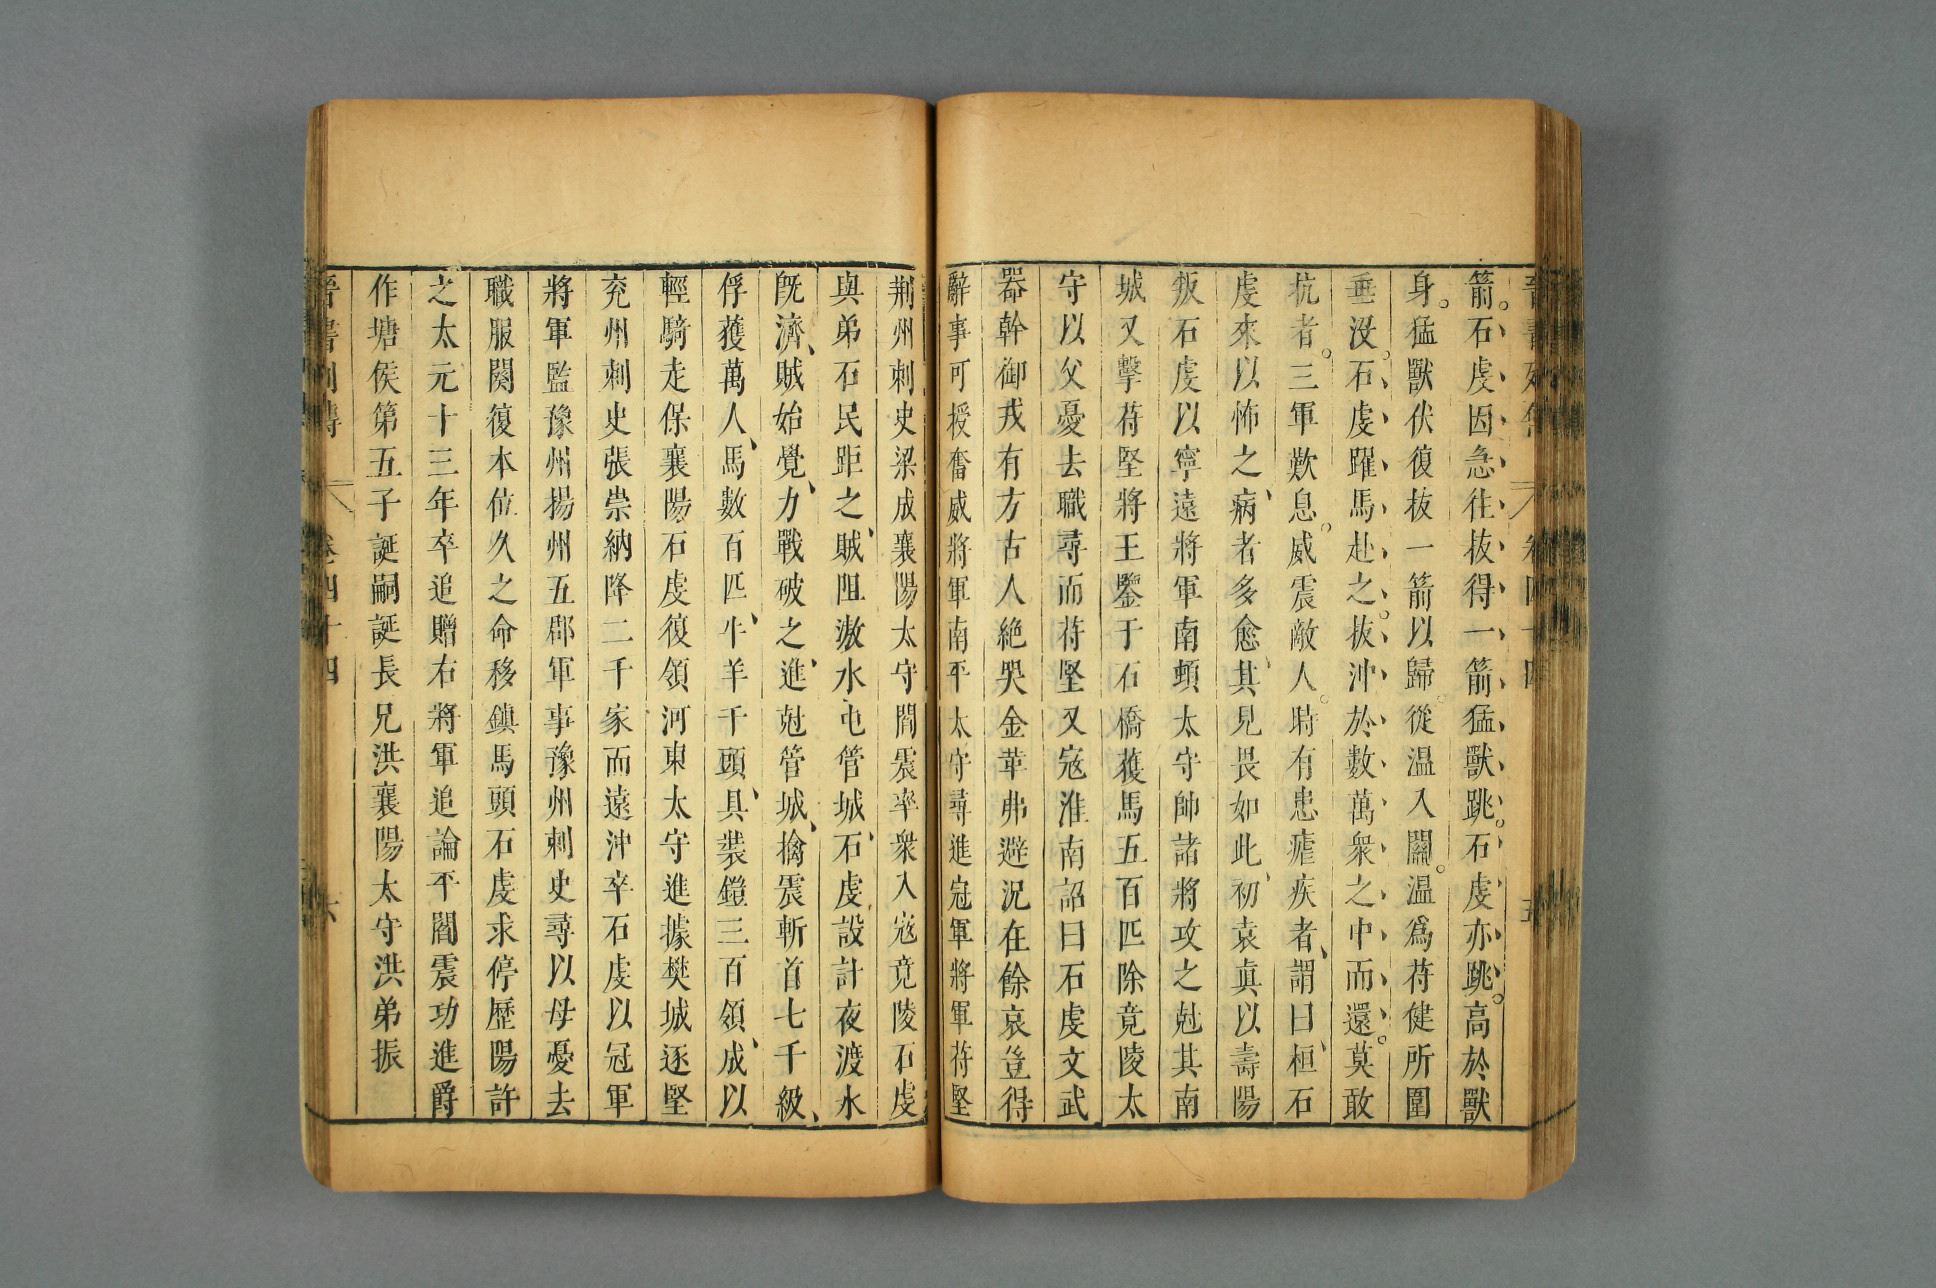 箭。石虔因急往抜得一箭猛獸跳。石虔亦跳。高於獸
身。猛獸伏復抜一箭以歸。從温入關。温爲苻健所圍
垂没。石虔躍馬赴之。抜沖於數萬衆之中而還。莫敢
抗者。三軍歎息。威震敵人。時有患瘧疾者、謂曰、桓石
虔來以怖之、病者多愈、其見畏如此、初袁眞以壽陽
叛石虔以寧遠將軍南頓太守帥諸將攻之尅其南
城又擊苻堅將王鑒于石橋獲馬五百匹除竟陵太
守以父憂去職尋而苻堅又宼淮南詔曰石虔文武
器幹御戎有方古人絶哭金革弗避況在餘哀豈得
辭事可授奮威將軍南平太守尋進冠軍將軍苻堅
荆州刺史梁成襄陽太守閻震率衆入宼竟陵石虔
與弟石民距之、賊阻滶水屯管城、石虔設計夜渡水
旣濟、賊始覺、力戰破之、進尅管城、擒震斬首七千級、
俘獲萬人、馬數百匹、牛羊千頭、具裝鎧三百領、成以
輕騎走保襄陽石虔復領河東太守進據樊城逐堅
兖州刺史張崇納降二千家而遠沖卒石虔以冠軍
將軍監豫州揚州五郡軍事豫州刺史尋以母憂去
職服闋復本位久之命移鎮馬頭石虔求停歷陽許
之太元十三年卒追贈右將軍追論平閻震功進爵
作塘侯第五子誕嗣誕長兄洪襄陽太守洪弟振
晉書列傳 卷四十四 六